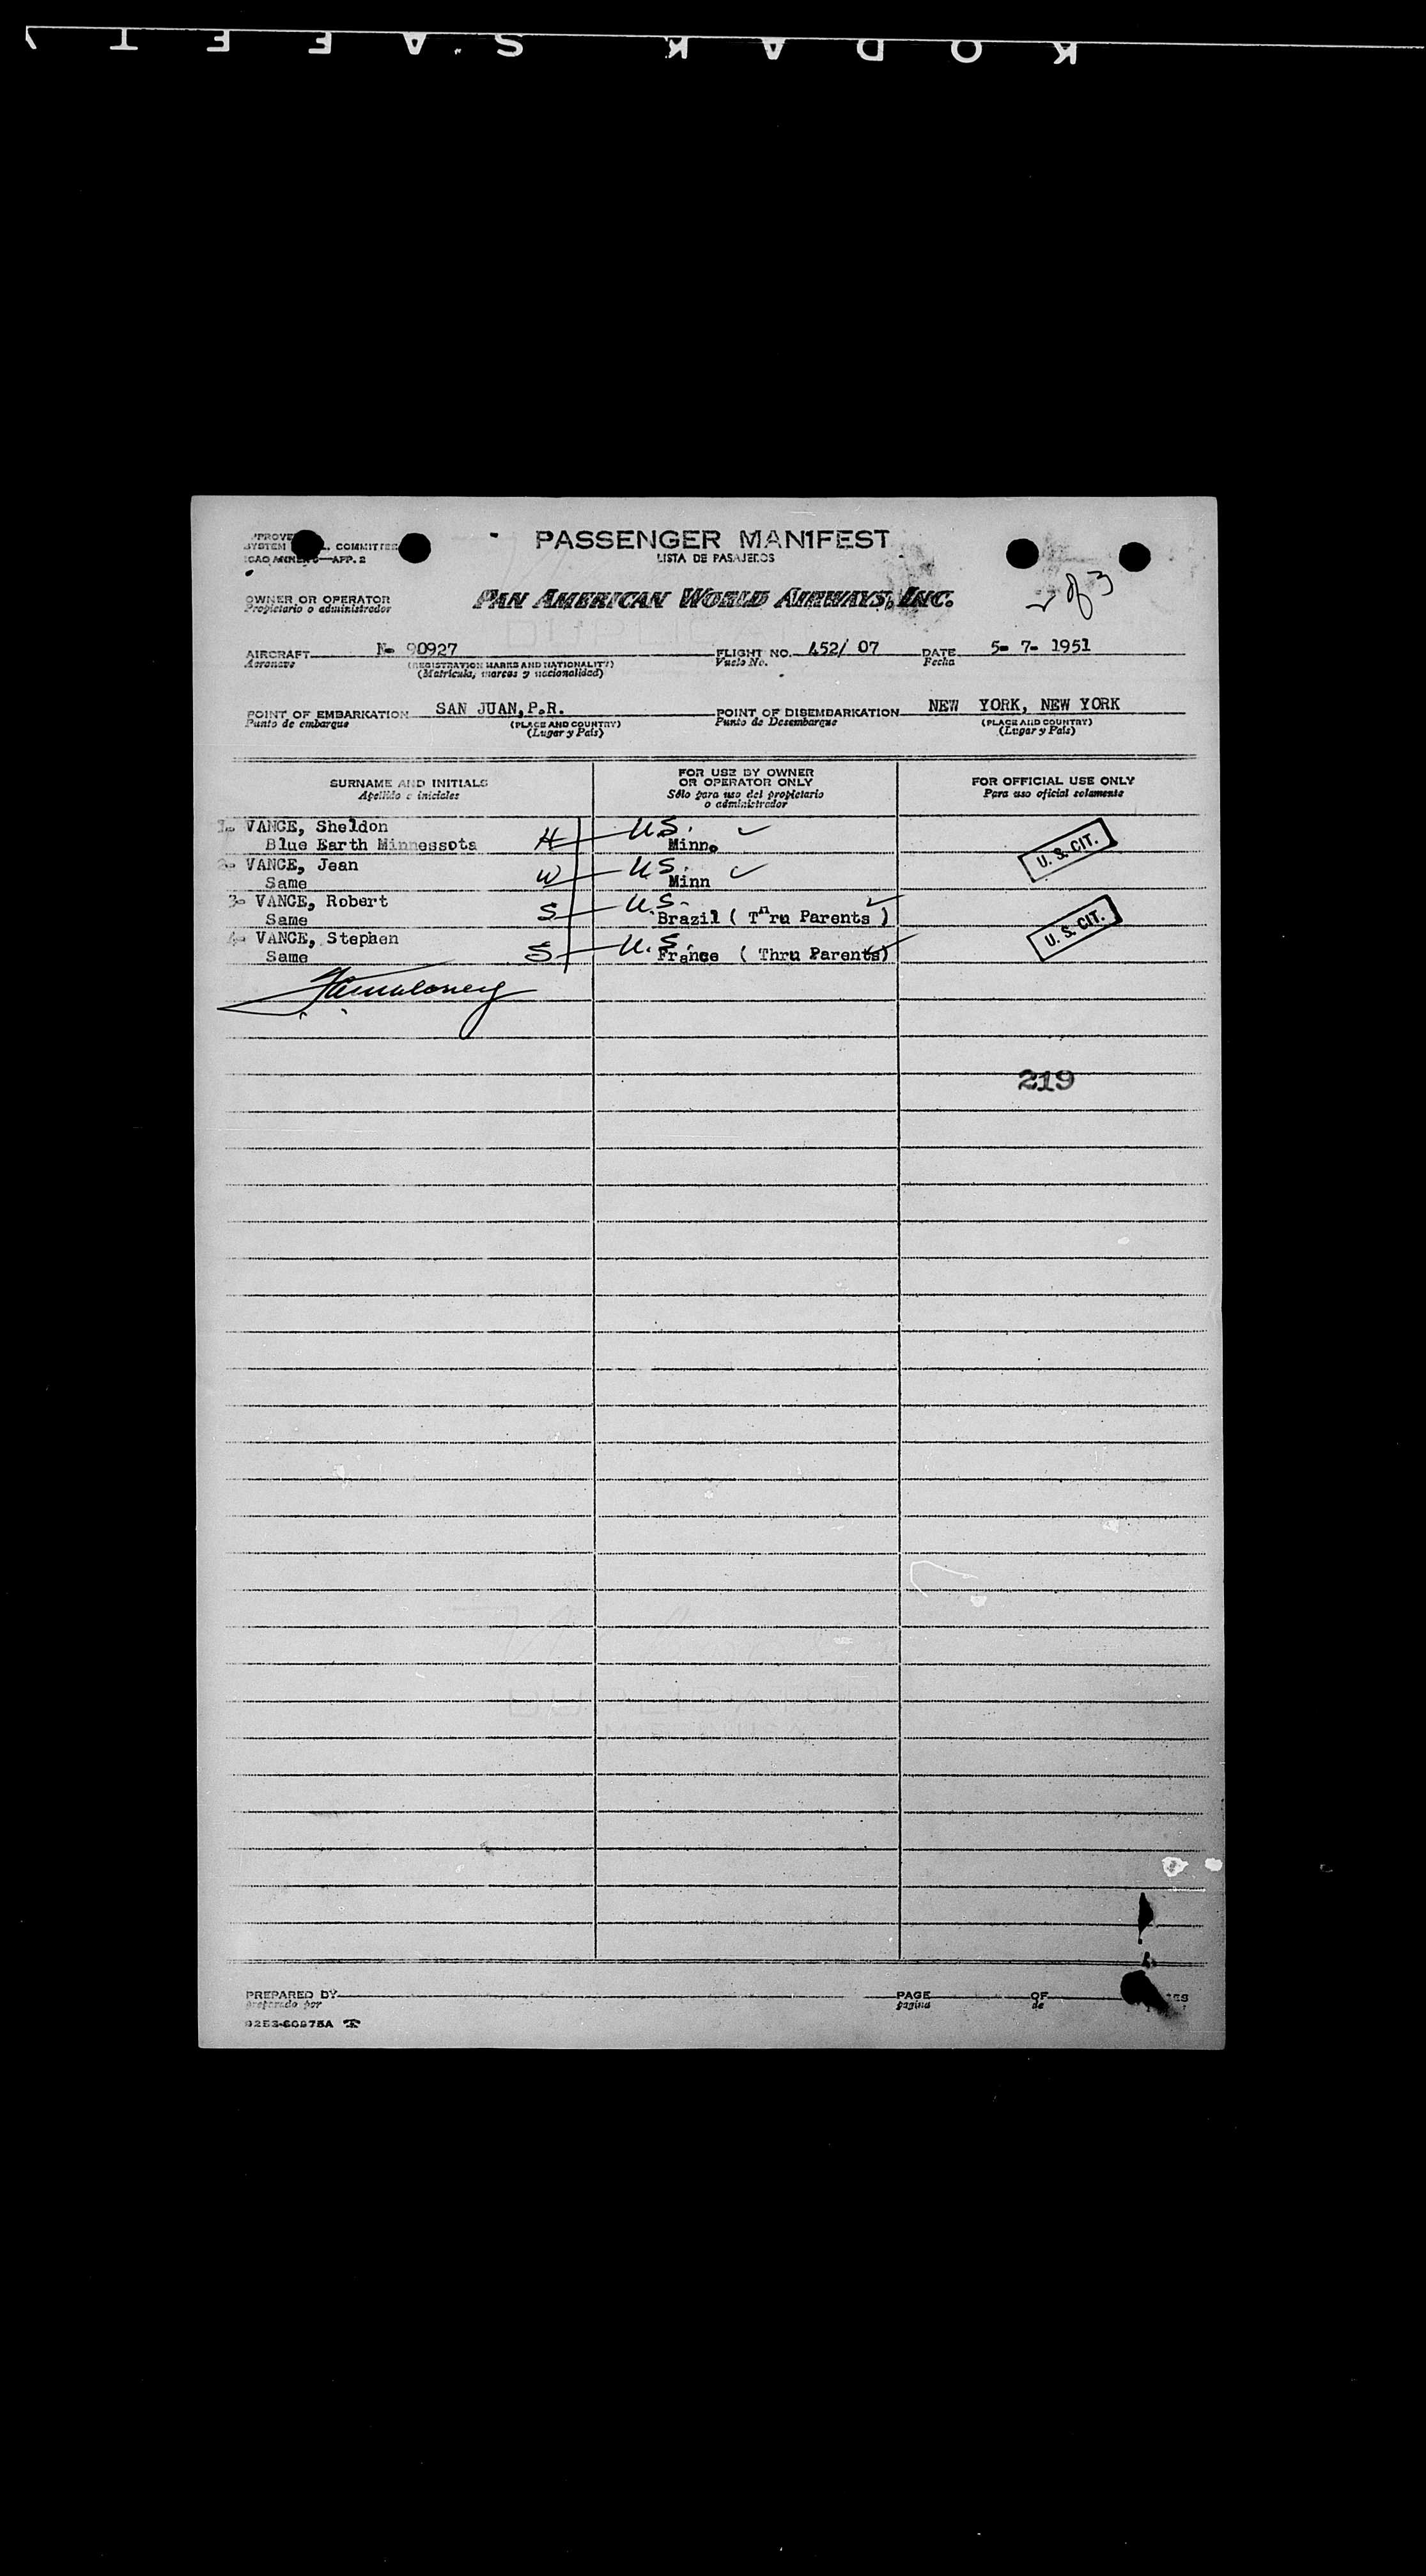 KODAK SAFET
PASSENGER MANIFEST
LISTA DE PASAJEROS
COMMITTEE
APP. 2
2 of 3
OWNER OR OPERATOR
Propietario o administrador
PAN AMERICAN WORLD AIRWAYS, INC.
AIRCRAFT N- 90927 FLIGHT NO. 452/ 07 DATE 5- 7- 1951
Aeronave (REGISTRATION MARKS AND NATIONALITY) Vuelo No. Fecha
(Matrícula, marcas y nacionalidad)
POINT OF EMBARKATION SAN JUAN,P.R. POINT OF DISEMBARKATION NEW YORK, NEW YORK
Punto de embarque (PLACE AND COUNTRY) Punto de Desembarque (PLACE AND COUNTRY)
(Lugar y País) (Lugar y País)
SURNAME AND INITIALS
Apellido e iniciales
FOR USE BY OWNER
OR OPERATOR ONLY
Sólo para uso del propietario
o administrador
FOR OFFICIAL USE ONLY
Para uso oficial solamente
1- VANCE, Sheldon H U.S.
Blue Earth Minnessota Minn. U. S. CIT.
2- VANCE, Jean W U.S.
Same Minn
3- VANCE, Robert S U.S.
Same Brazil ( Thru Parents ) U. S. CIT.
4- VANCE, Stephen S U.S.
Same France ( Thru Parents)
219
DUPLICATOR
PREPARED BY PAGE OF
preparado por página de